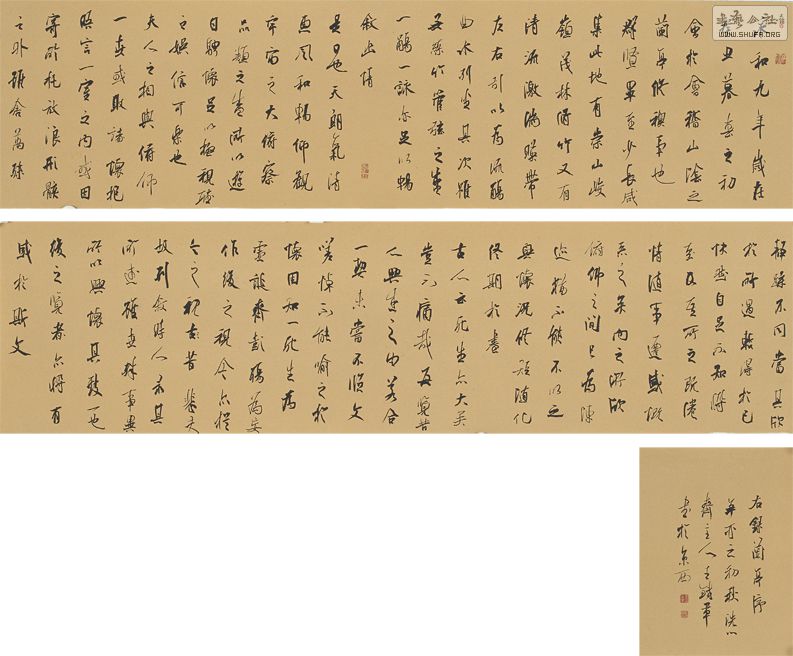 書藝公社
WWW.SHUFA.ORG
和九年歲在
丑暮春之初
會於會稽山陰之
蘭亭修禊事也
群賢畢至少長咸
集此地有崇山峻
嶺茂林修竹又有
清流激湍暎帶
左右引以為流觴
曲水列坐其次雖
無絲竹管弦之盛
一觴一詠亦足以暢
敘幽情
是日也天朗氣清
惠風和暢仰觀
宇宙之大俯察
品類之盛所以遊
目騁懷足以極視聽
之娛信可樂也
夫人之相與俯仰
一世或取諸懷抱
晤言一室之內或因
寄所託放浪形骸
之外雖舍萬殊
靜躁不同當其欣
於所遇暫得於己
快然自足不知將
至及其所之既倦
情隨事遷感慨
系之矣向之所欣
俯仰之間已為陳
跡猶不能不以之
興懷況修短隨化
終期於盡
古人云死生亦大矣
豈不痛哉每覽昔
人興感之由若合
一契未嘗不臨文
嗟悼不能喻之於
懷固知一死生為
虛誕齊彭殤為妄
作後之視今亦猶
今之視昔悲夫
故列敘時人錄其
所述雖世殊事異
所以興懷其致一也
後之覽者亦將有
感於斯文
右錄蘭亭序
之初秋洗心
齋主人王
書於京西